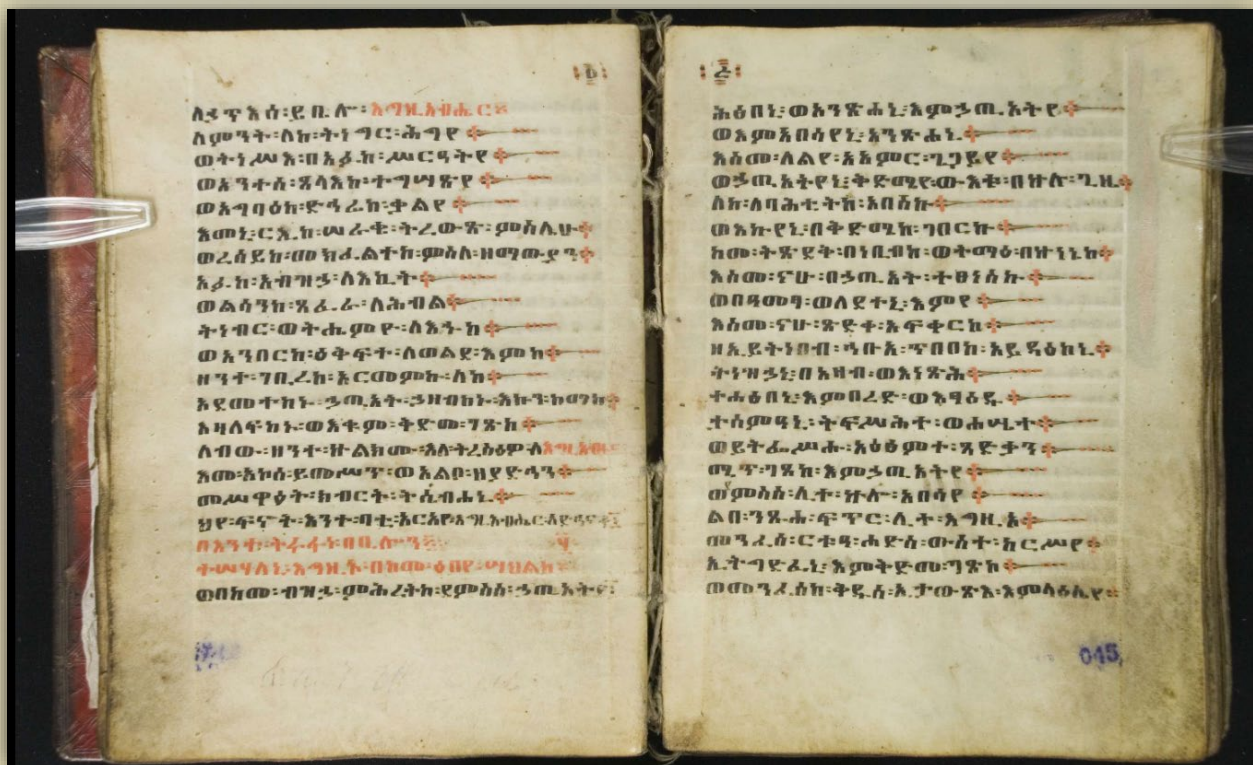 ለኃጥእሰ፡ይቤሎ፡እግዚአብሔር፨
ለምንት፡ለከ፡ትነግር፡ሕግየ፨
ወትነሥእ፡በአፉከ፡ሥርዓትየ፨
ወአንተሰ፡ጸላእከ፡ተግሣጽየ፨
ወአግባዕከ፡ድኅሬከ፡ቃልየ፨
እመኒ፡ርኢከ፡ሠራቄ፡ትረውጽ፡ምስሌሁ፨
ወረሰይከ፡መክፈልተከ፡ምስለ፡ዘማውያን፨
አፉከ፡አብዝኃ፡ለእኪት፨
ወልሳንከ፡ጸፈራ፡ለሕብል፨
ትነብር፡ወትሐምዮ፡ለእኁከ፨
ወአንበርከ፡ዕቅፍተ፡ለወልደ፡እምከ፨
ዘንተ፡ገቢረከ፡አርመምኩ፡ለከ፨
አደመተከኑ፡ኃጢአት፡ኃዘብከኑ፡እኩን፡ከማከ፨
እዛለፍከኑ፡ወእቁም፡ቅድመ፡ገጽከ፨
ለብው፡ዘንተ፡ኵልክሙ፡እለ፡ትረስዕዎ፡ለእግዚአብ
እመ፡አኮሰ፡ይመሥጥ፡ወአልቦ፡ዘያድኅን፨
መሥዋዕት፡ክብርት፡ትሴብሐኒ፨
ህየ፡ፍኖት፡እንተ፡ባቲ፡አርአዮ፡እግዚአብሔር፡አድኅኖቶ፨
በእንተ፡ትሩፋነ፡ባቢሎን፨ ፶
ተሣሃለኒ፡እግዚኦ፡በከመ፡ዕበየ፡ሣህልከ፨
ወበከመ፡ብዝኃ፡ምሕረትከ፡ደምስስ፡ኃጢአትየ፨
ሕፅበኒ፡ወአንጽሐኒ፡እምኃጢአትየ፨
ወእምአበሳየኒ፡አንጽሐኒ፨
እስመ፡ለልየ፡አአምር፡ጌጋይየ፨
ወኃጢአትየኒ፡ቅድሜየ፡ውእቱ፡በኵሉ፡ጊዜ፨
ለከ፡ለባሕቲትከ፡አበስኩ፨
ወእኩየኒ፡በቅድሜከ፡ገበርኩ፨
ከመ፡ትጽደቅ፡በነቢብከ፡ወትማዕ፡በኵነኔከ፨
እስመ፡ናሁ፡በኃጢአት፡ተፀነስኩ፨
ወበዓመፃ፡ወለደተኒ፡እምየ፨
እስመ፡ናሁ፡ጽድቀ፡አፍቀርከ፨
ዘኢይትነበብ፡ኅቡአ፡ጥበበከ፡አይዳዕከኒ፨
ትነዝኃኒ፡በአዛብ፡ወእነጽሕ፨
ተሐፅበኒ፡እምበረድ፡ወእፃዐዱ፨
ተሰምዓኒ፡ትፍሥሕተ፡ወሐሤተ፨
ወይትፌሥሑ፡አዕፅምተ፡ጻድቃን፨
ሚጥ፡ገጸከ፡እምኃጢአትየ፨
ወምስስ፡ሊተ፡ኵሎ፡አበሳየ፨
ልበ፡ንጹሐ፡ፍጥር፡ሊተ፡እግዚኦ፨
መንፈሰ፡ርቱዓ፡ሐድስ፡ውስተ፡ከርሥየ፨
ኢትግድፈኒ፡እምቅድመ፡ገጽከ፨
ወመንፈሰከ፡ቅዱሰ፡ኢታውጽእ፡እምላዕሌየ፨
045